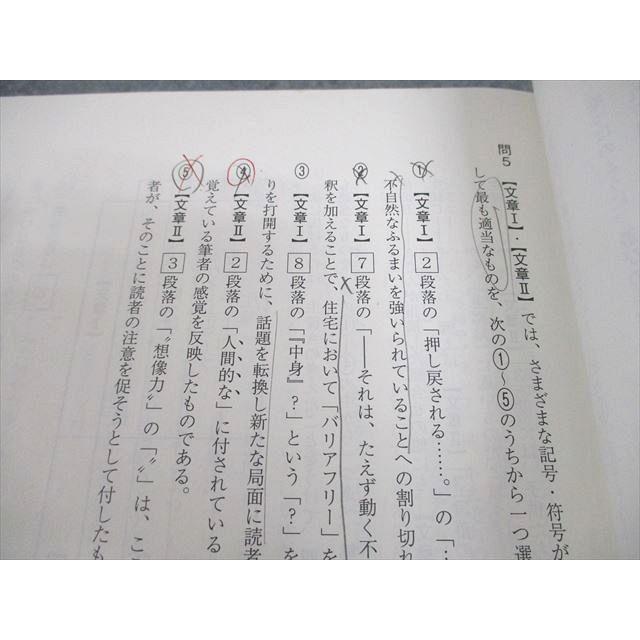 問5 【文章Ⅰ】・【文章Ⅱ】では、さまざまな記号・符号が
して最も適当なものを、次の①～⑤のうちから一つ選
① 【文章Ⅰ】2段落の「押し戻される……。」の「…
不自然なふるまいを強いられていることへの割り切れ
② 【文章Ⅰ】7段落の「――それは、たえず動く不
釈を加えることで、住宅において「バリアフリー」を
③ 【文章Ⅰ】8段落の「『中身』？」という「？」を
りを打開するために、話題を転換し新たな局面に読者
④ 【文章Ⅱ】2段落の「人間的な」に付されている
覚えている筆者の感覚を反映したものである。
⑤ 【文章Ⅱ】3段落の「〝想像力〟」の「〝〟」は、こ
者が、そのことに読者の注意を促そうとして付したも